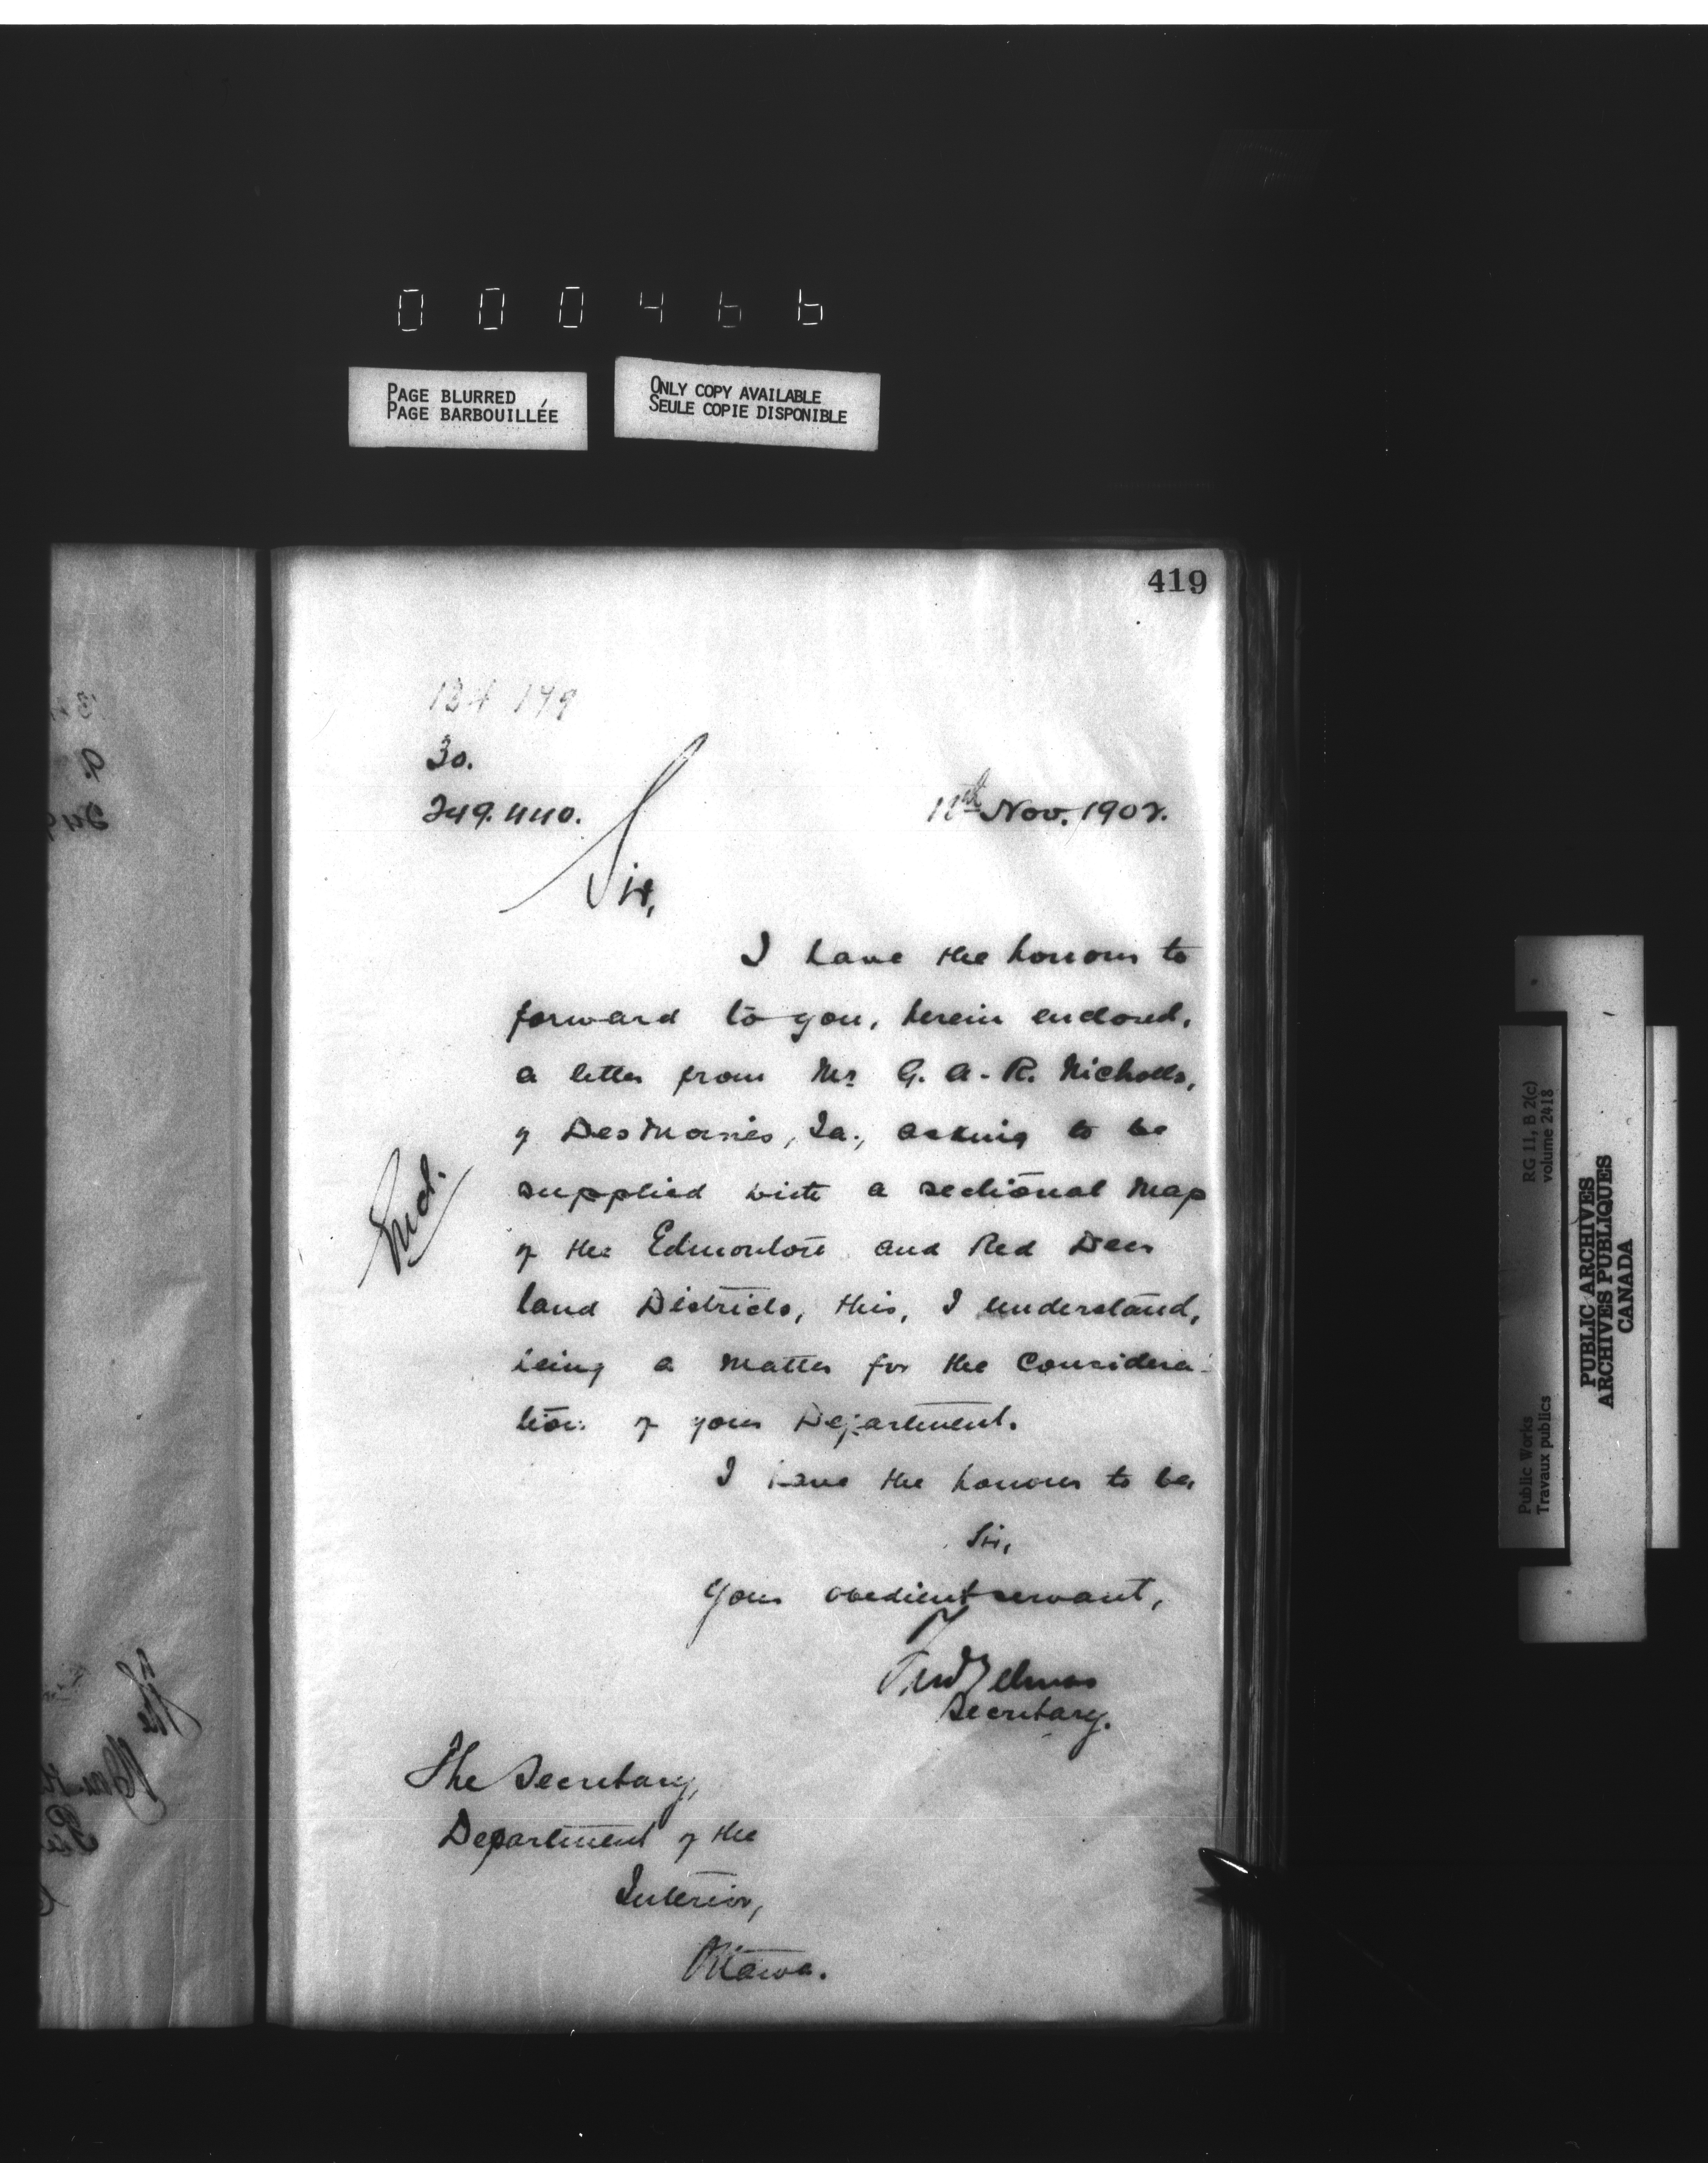 000466
PAGE BLURRED
PAGE BARBOUILLÉE
ONLY COPY AVAILABLE
SEULE COPIE DISPONIBLE
419
30.
249.440.
Nov. 1902.
Sir,
I have the honour to
forward to you, herein enclosed,
a letter from Mr G. A. R. Nicholls,
of DesMoines, Ia., asking to be
supplied with a sectional Map
of the Edmonton and Red Deer
land Districts, this, I understand,
being a matter for the Considera-
tion of your Department.
Encl.
I have the honour to be,
Sir,
Your obedient servant,
Secretary.
The Secretary,
Department of the
Interior,
Ottawa.
Public Works
Travaux publics
RG 11, B 2(c)
volume 2418
PUBLIC ARCHIVES
ARCHIVES PUBLIQUES
CANADA